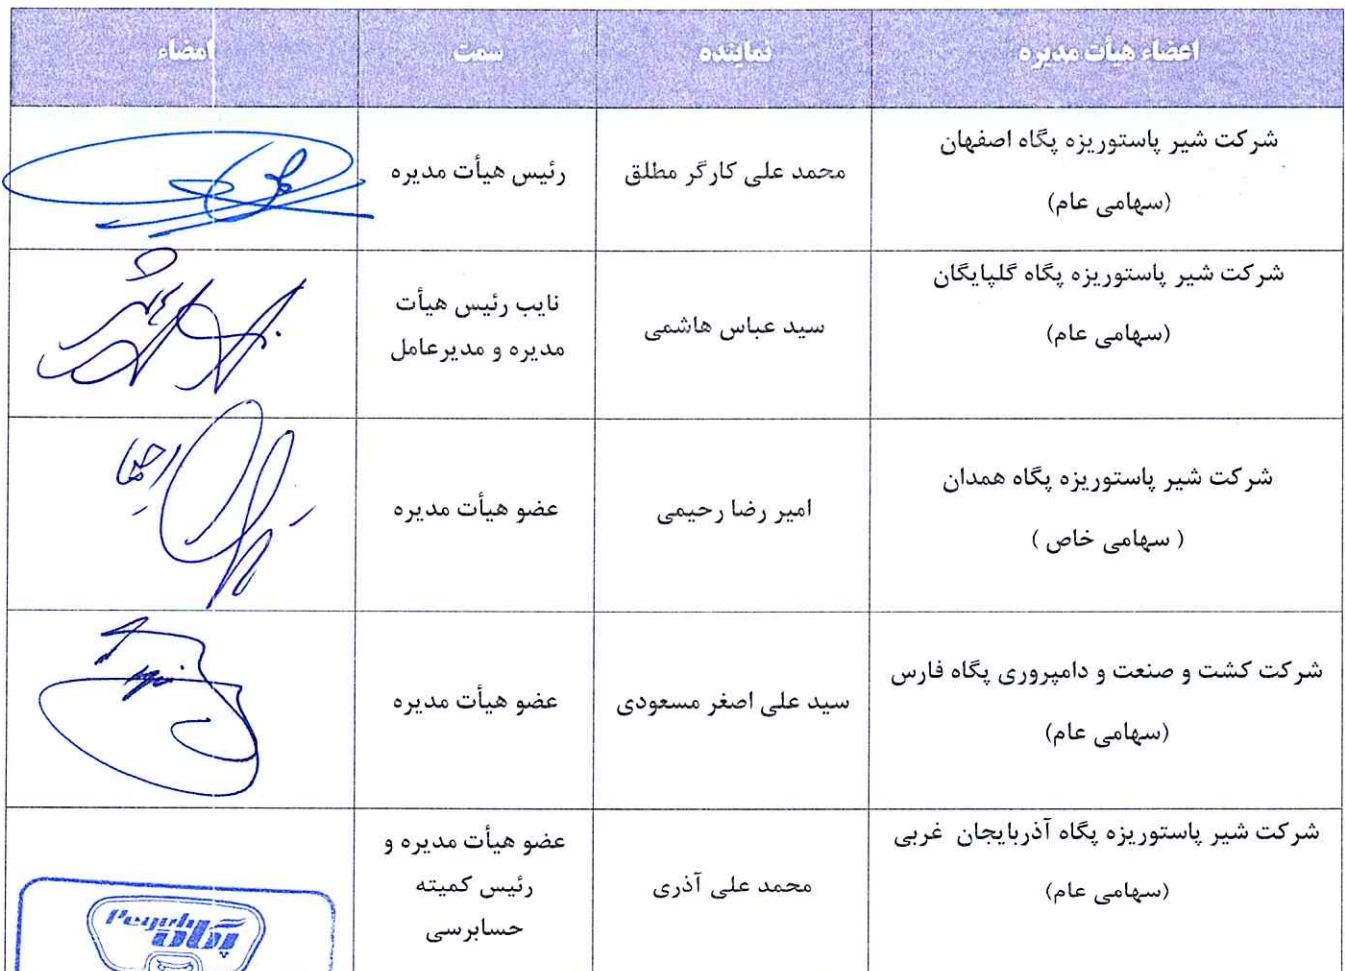 اعضاء هیأت مدیره
نماینده
سمت
امضاء
شرکت شیر پاستوریزه پگاه اصفهان
(سهامی عام)
محمد علی کارگر مطلق
رئیس هیأت مدیره
شرکت شیر پاستوریزه پگاه گلپایگان
(سهامی عام)
سید عباس هاشمی
نایب رئیس هیأت
مدیره و مدیرعامل
شرکت شیر پاستوریزه پگاه همدان
( سهامی خاص )
امیر رضا رحیمی
عضو هیأت مدیره
شرکت کشت و صنعت و دامپروری پگاه فارس
(سهامی عام)
سید علی اصغر مسعودی
عضو هیأت مدیره
شرکت شیر پاستوریزه پگاه آذربایجان غربی
(سهامی عام)
محمد علی آذری
عضو هیأت مدیره و
رئیس کمیته
حسابرسی
Pegah
پگاه